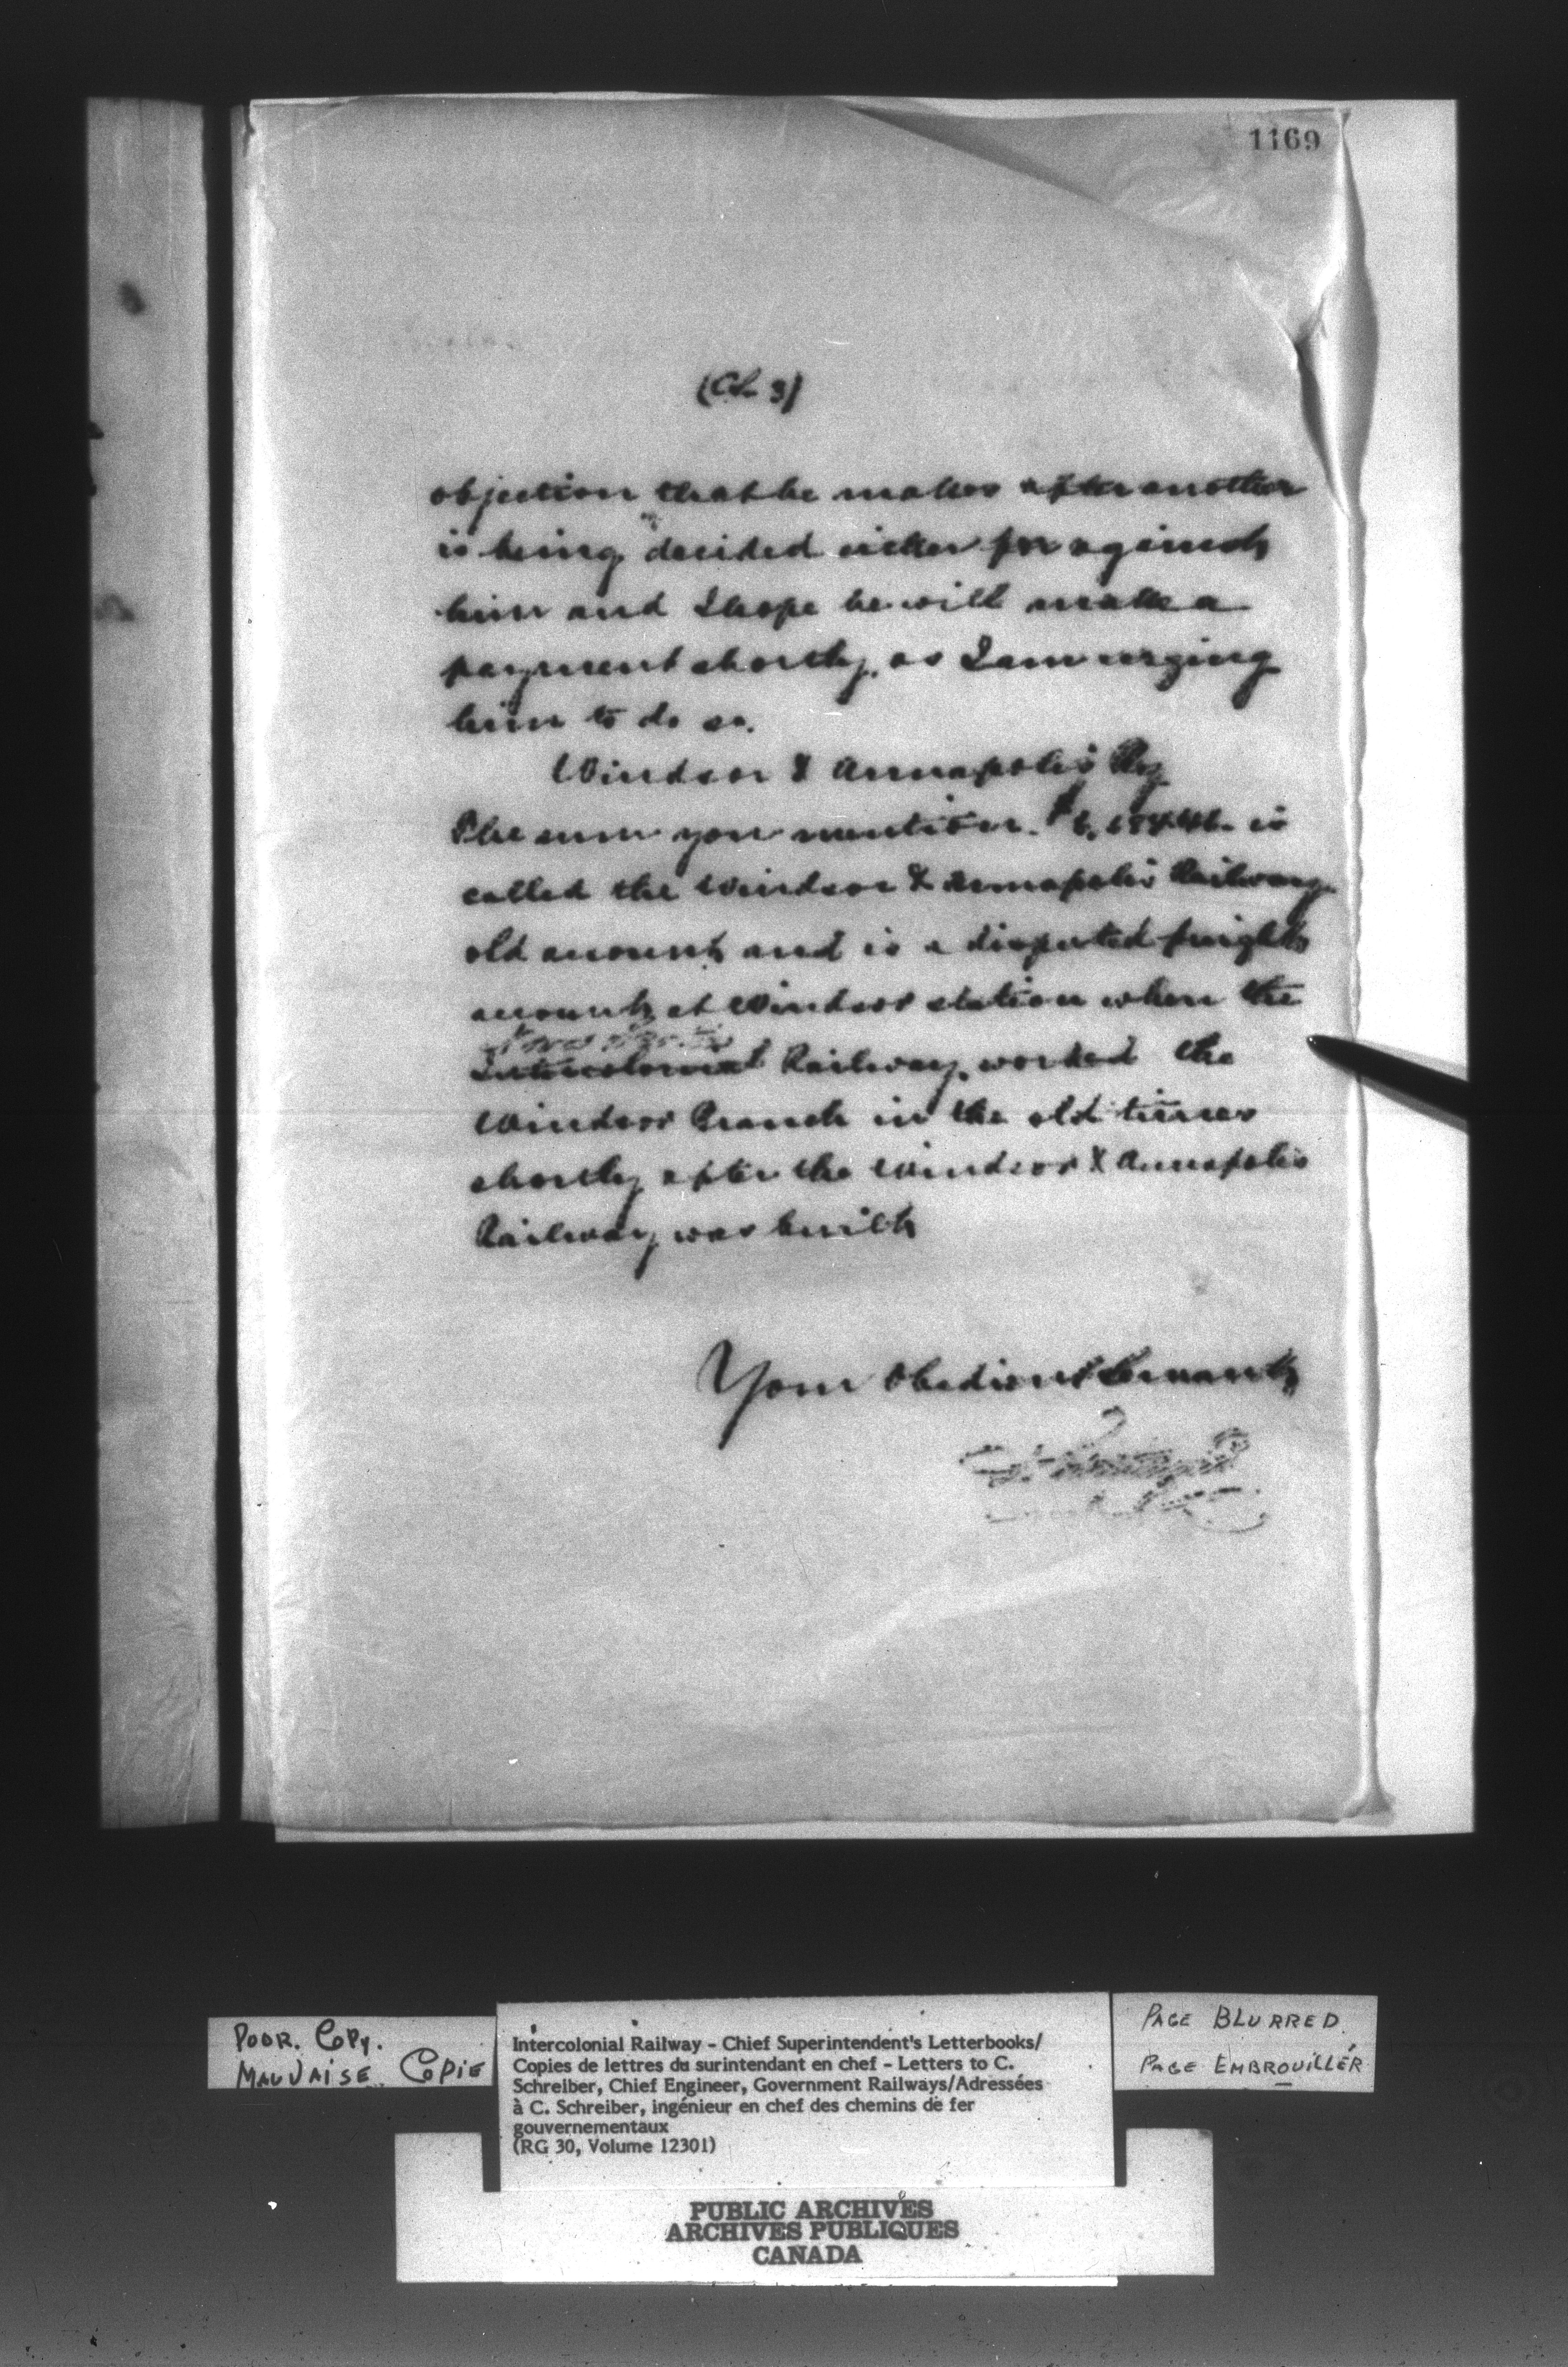 1169
objection that he makes after another
is being decided either for against
him and I hope he will make a
payment shortly, as I am urging
him to do so.
Windsor & Annapolis Ry
The sum you mention. is
called the Windsor & Annapolis Railway
old account and is a disputed freight
account at Windsor station when the
Nova Scotia
Intercolonial Railway worked the
Windsor Branch in the old times
shortly after the Windsor & Annapolis
Railway was built
Your Obedient Servant
POOR. COPY.
MAUVAISE COPIE
Intercolonial Railway - Chief Superintendent's Letterbooks/
Copies de lettres du surintendant en chef - Letters to C.
Schreiber, Chief Engineer, Government Railways/Adressées
à C. Schreiber, ingénieur en chef des chemins de fer
gouvernementaux
(RG 30, Volume 12301)
PAGE BLURRED.
PAGE EMBROUILLÉR
PUBLIC ARCHIVES
ARCHIVES PUBLIQUES
CANADA